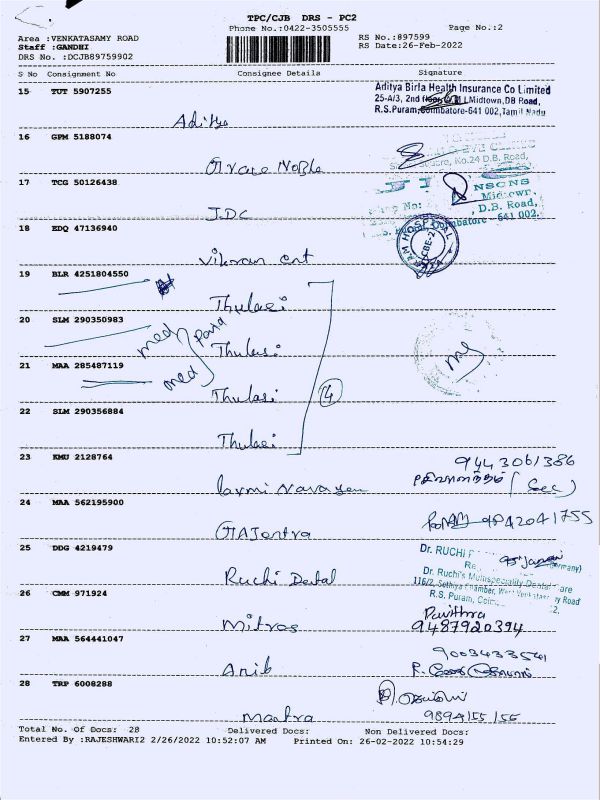 TPC/CJB DRS - PC2
Phone No.:0422-3505555
Page No.:2
Area :VENKATASAMY ROAD
RS No.:897599
Staff :GANDHI
RS Date:26-Feb-2022
DRS No. :DCJB89759902
S No Consignment No Consignee Details Signature
15 TUT 5907255
Aditya Birla Health Insurance Co Limited
25-A/3, 2nd Midtown,DB Road,
R.S.Puram,Coimbatore-641 002,Tamil Nadu
Aditya
16 GPM 5188074
No.24 D.B. Road,
Grace Noble
17 TCG 50126438
NSONS
Midtown,
D.B. Road,
641 002.
J.D.C
18 EDQ 47136940
HOSPITAL
CBE-2
Vikram ent
19 BLR 4251804550
Thulasi
20 SLM 290350983
med
Thulasi
21 MAA 285487119
med
Thulasi
4
22 SLM 290356884
Thulasi
23 KMU 2128764
9443061386
(Sec)
Laxmi Narayan
24 MAA 562195900
9842041755
GAJentra
25 DDG 4219479
Dr. RUCHI
Germany)
Dr. Ruchi's Multispeciality Dental Care
116/2, Sethiya Chamber, West Venkatasamy Road
R.S. Puram,
Ruchi Dental
26 CMM 971924
Pavithra
9487920394
Mitras
27 MAA 564441047
9003433541
Anib
28 TRP 6008288
Mantra
9894155156
Total No. Of Docs: 28 Delivered Docs: Non Delivered Docs:
Entered By :RAJESHWARI2 2/26/2022 10:52:07 AM Printed On: 26-02-2022 10:54:29